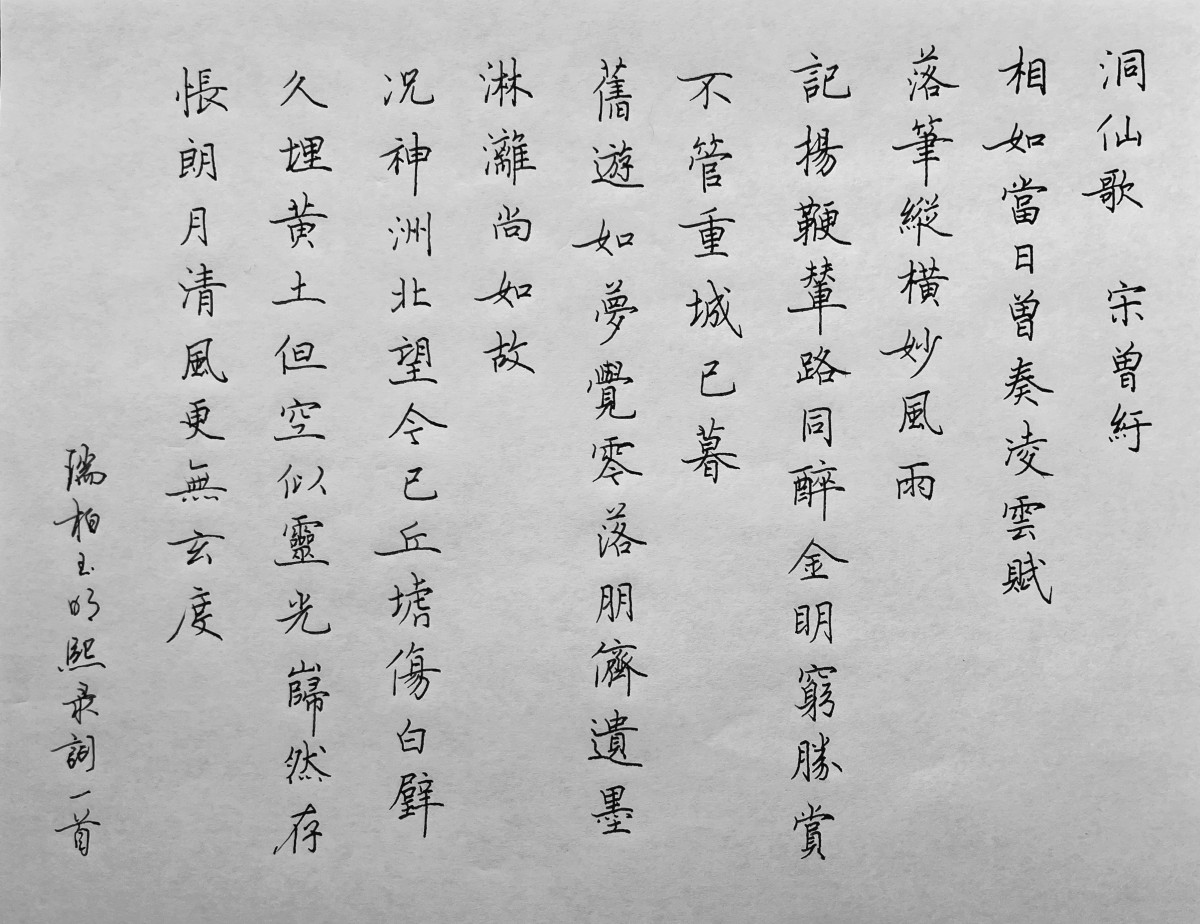 洞仙歌 宋曾紆
相如當日曾奏凌雲賦
落筆縱橫妙風雨
記揚鞭輦路同醉金明窮勝賞
不管重城已暮
舊遊如夢覺零落朋儕遺墨
淋灕尚如故
况神洲北望今已丘墟傷白璧
久埋黃土但空似靈光巋然存
悵朗月清風更無玄度
瑞柏玉明熙录詞一首